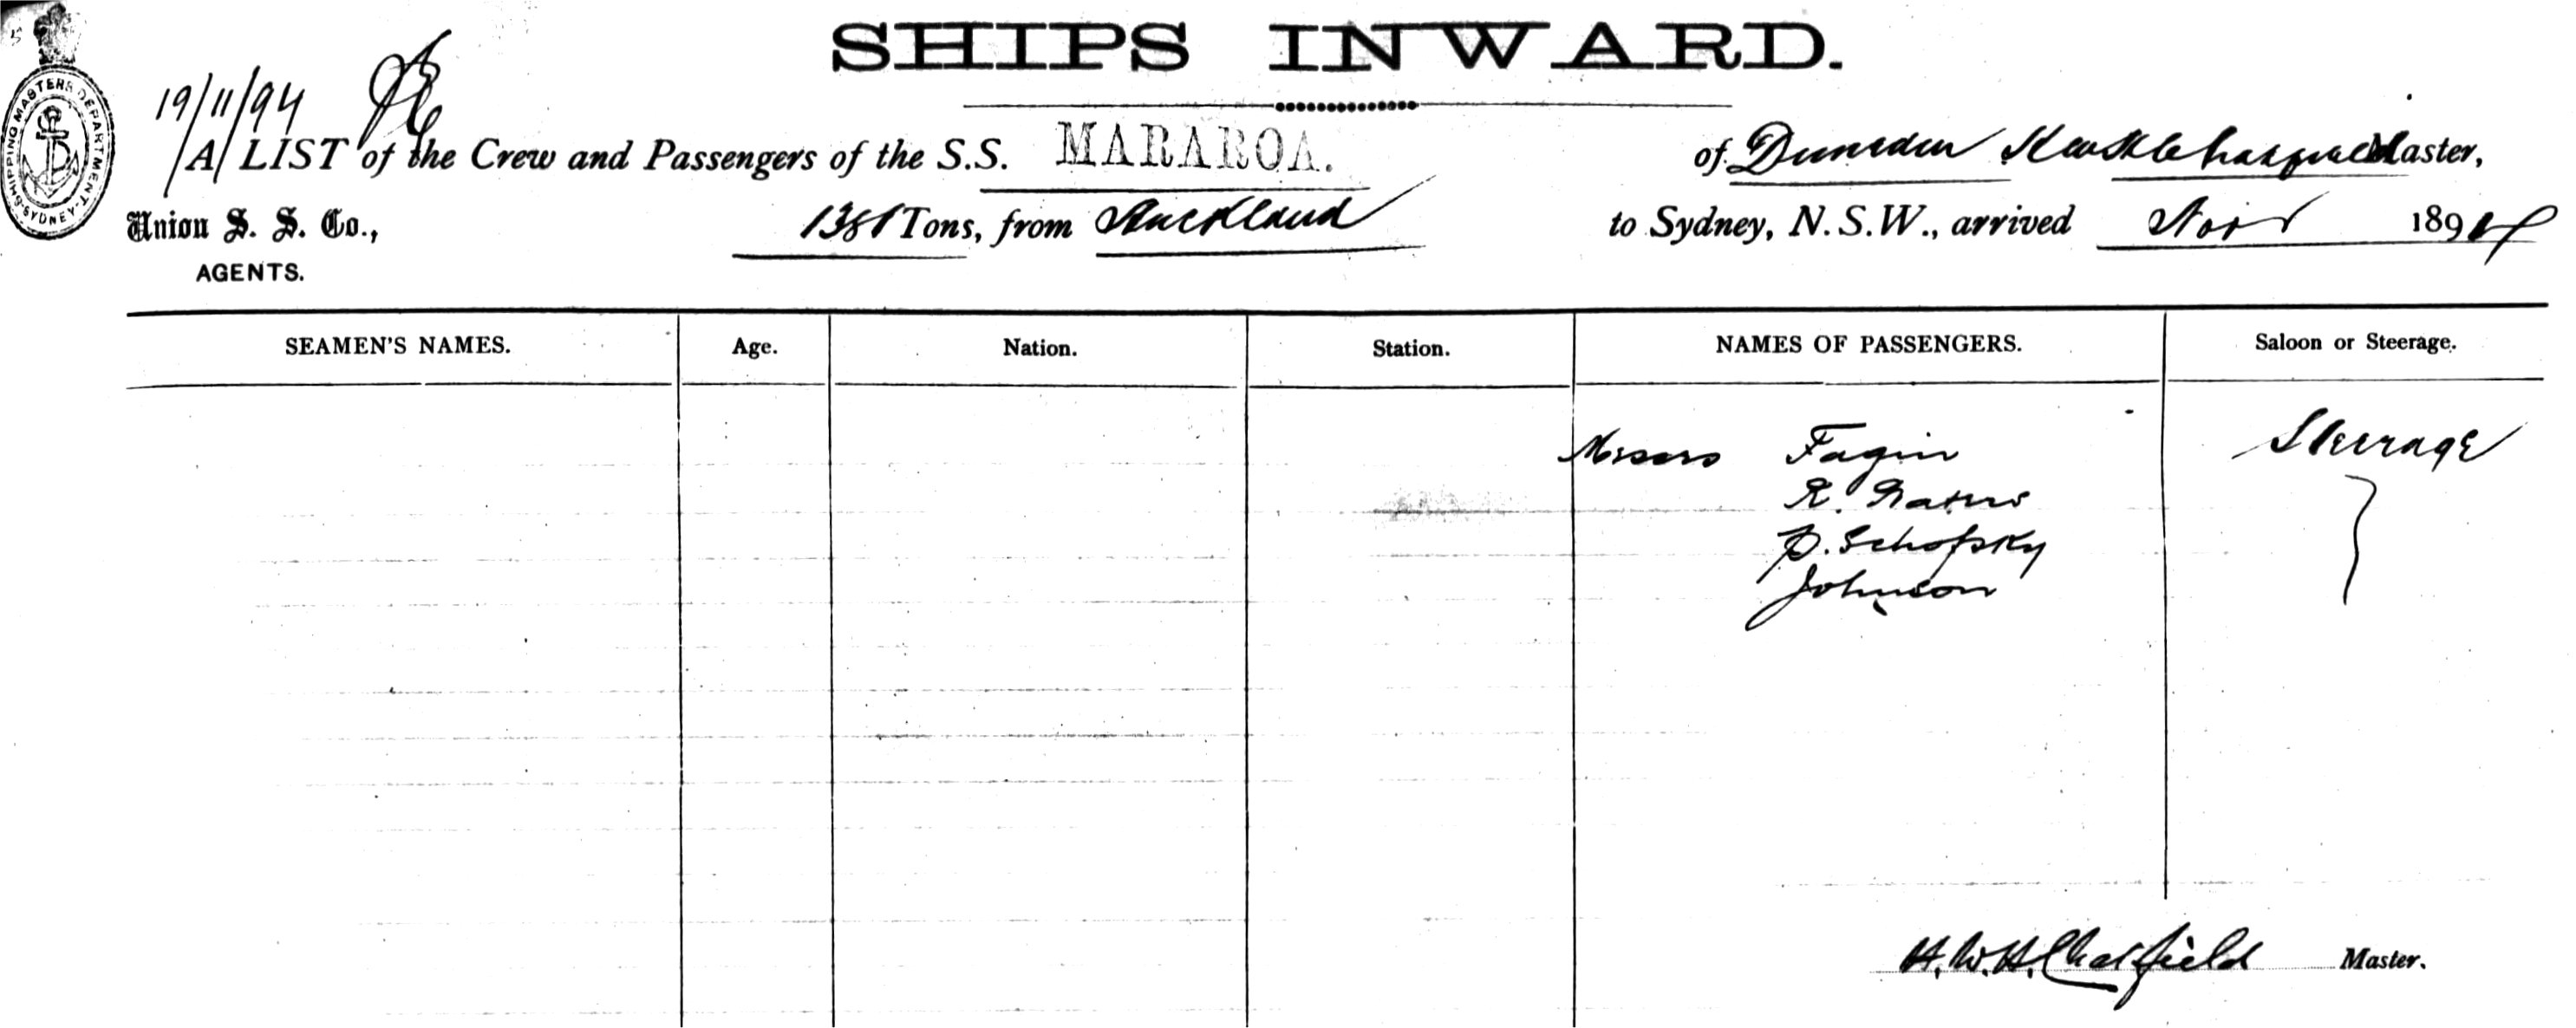 SHIPS INWARD.
SHIPPING MASTERS DEPARTMENT SYDNEY
19/11/94
A LIST of the Crew and Passengers of the S.S. MARAROA. of Dunedin Chatfield Master,
Union S. S. Co., 1381 Tons, from Auckland to Sydney, N.S.W., arrived Nov 1894
AGENTS.
SEAMEN'S NAMES. Age. Nation. Station. NAMES OF PASSENGERS. Saloon or Steerage.
Messrs Fagin Steerage
R.
P. Schofsky
Johnson
H.W.H. Chatfield Master.